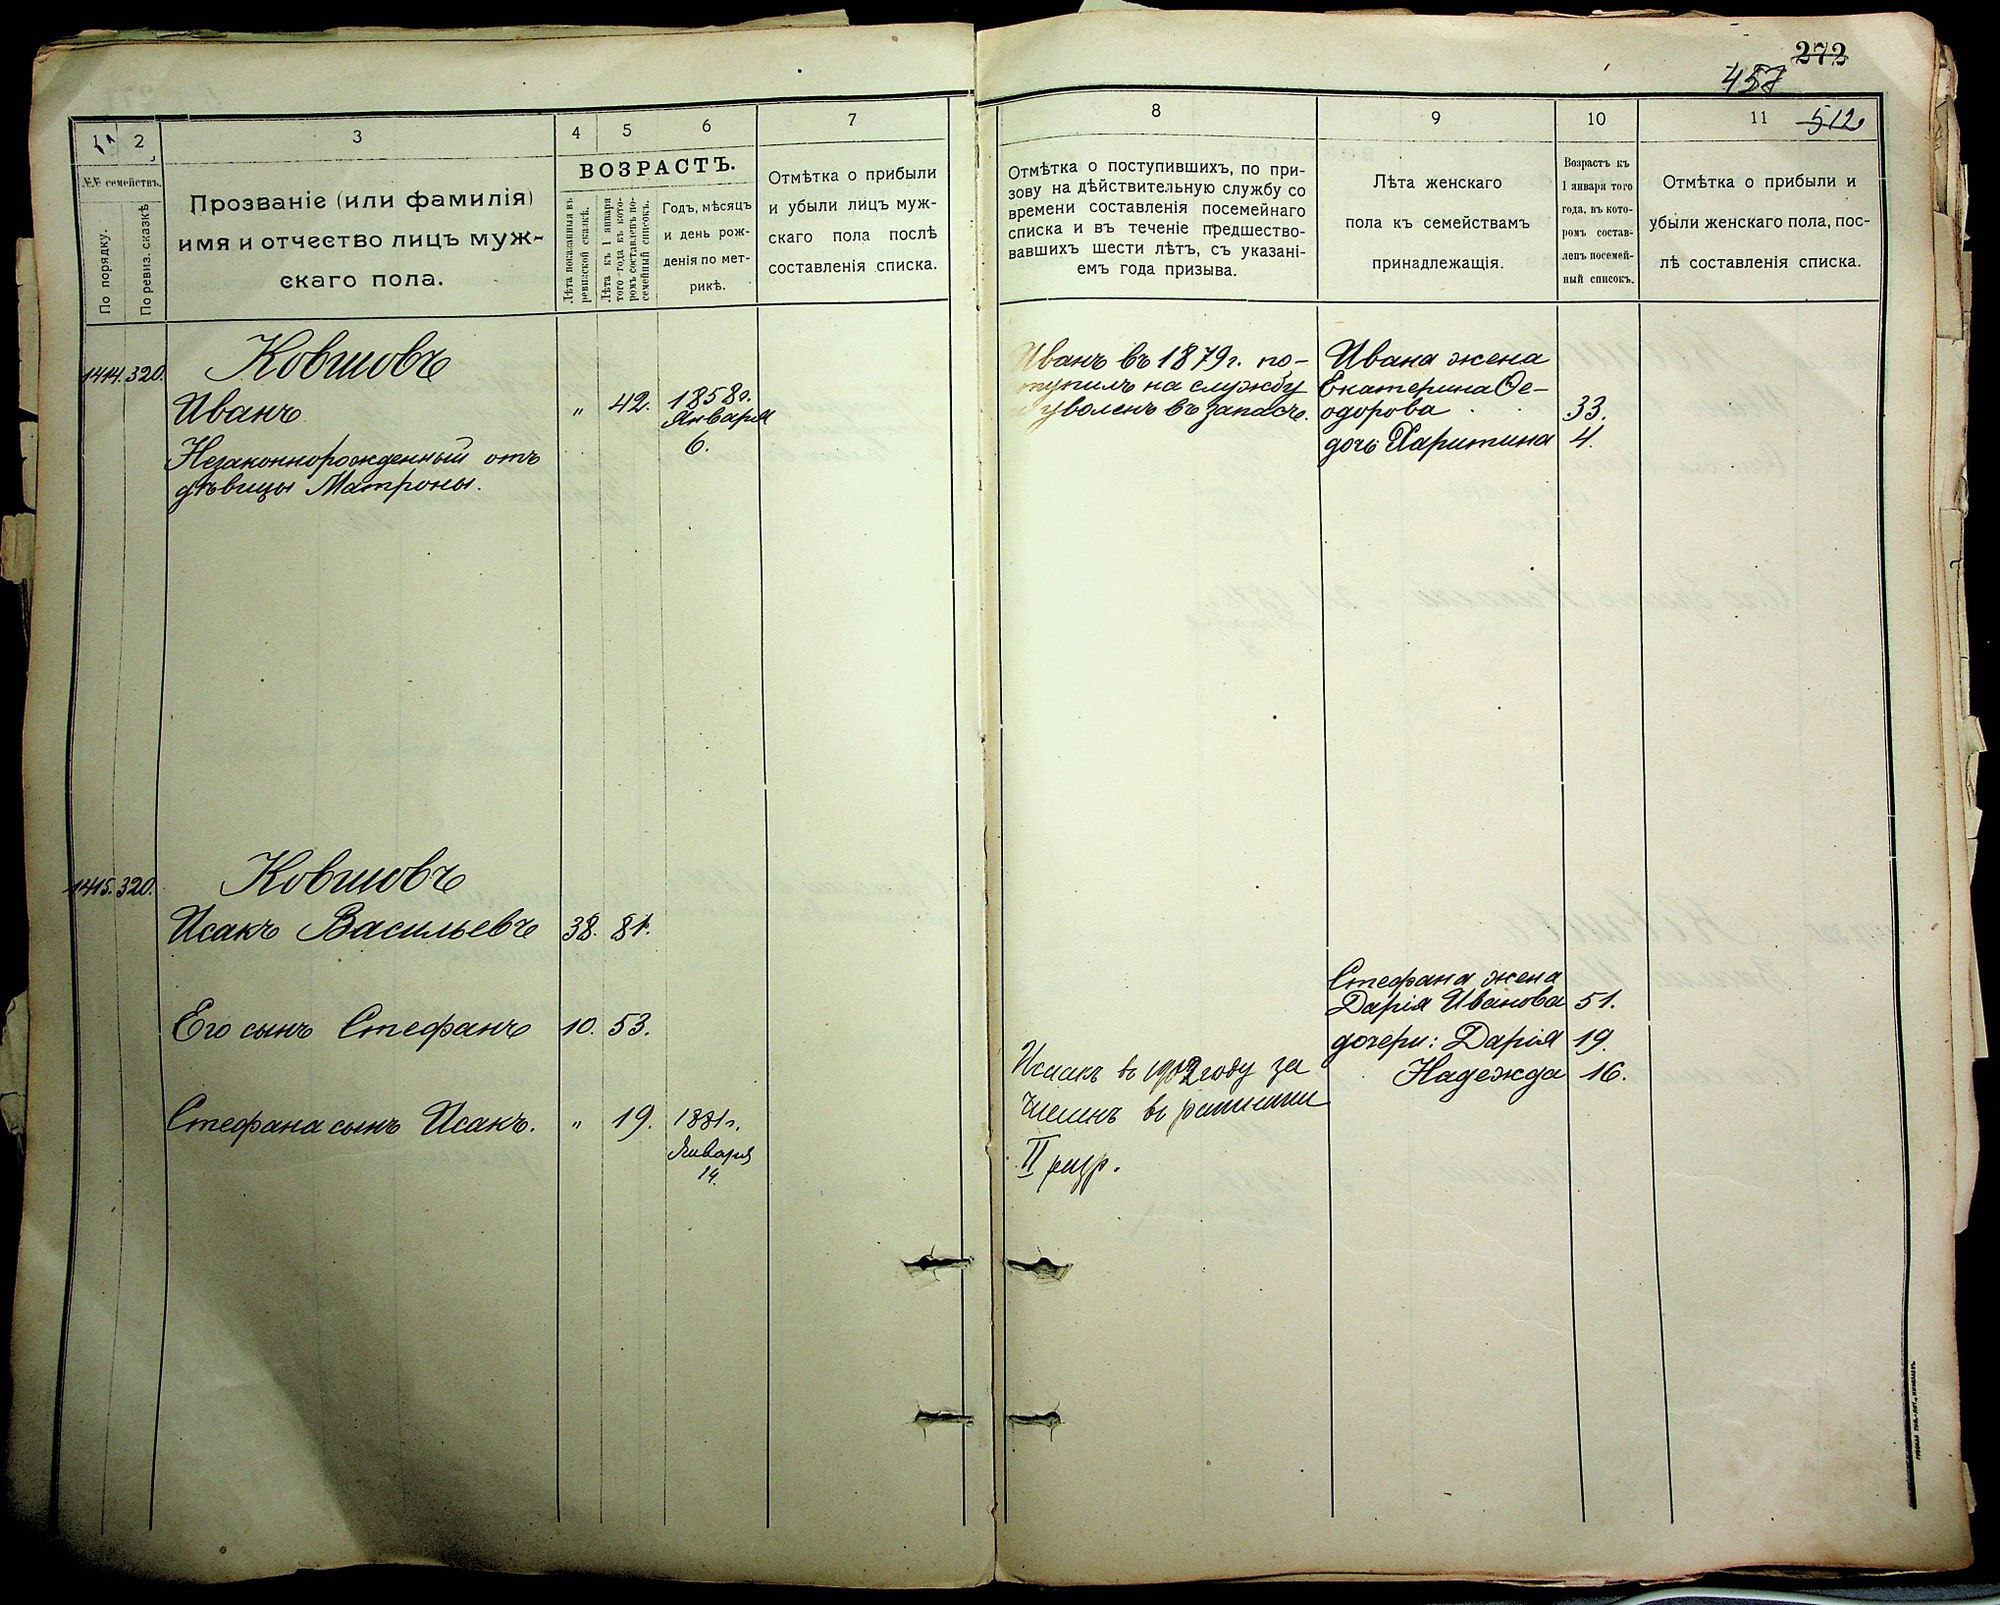 272
457
512
1
2
3
4
5
6
7
№№ семействъ.
По порядку.
По ревиз. сказкѣ
Прозваніе (или фамилія)
имя и отчество лицъ муж-
скаго пола.
ВОЗРАСТЪ.
Лѣта показанныя въ
ревизской сказкѣ.
Лѣта къ 1 января
того года въ кото-
ромъ составленъ по-
семейный списокъ.
Годъ, мѣсяцъ
и день рож-
денія по мет-
рикѣ.
Отмѣтка о прибыли
и убыли лицъ муж-
скаго пола послѣ
составленія списка.
8
9
10
11
Отмѣтка о поступившихъ, по при-
зову на дѣйствительную службу со
времени составленія посемейнаго
списка и въ теченіе предшество-
вавшихъ шести лѣтъ, съ указані-
емъ года призыва.
Лѣта женскаго
пола къ семействамъ
принадлежащія.
Возрастъ къ
1 января того
года, въ кото-
ромъ состав-
ленъ посемей-
ный списокъ.
Отмѣтка о прибыли и
убыли женскаго пола, пос-
лѣ составленія списка.
1414. 320.
Ковшовъ
Иванъ " 42. 1858г.
Января
6.
Незаконнорожденный отъ
дѣвицы Матроны.
Иванъ въ 1879г. по-
тупилъ на службу
уволенъ въ запасъ.
Ивана жена
Екатерина Ѳе-
одорова 33.
дочь Харитина 4.
1415. 320.
Ковшовъ
Исакъ Васильевъ 38. 81.
Его сынъ Стефанъ 10. 53.
Стефана сынъ Исакъ. " 19. 1881г.
Января
14.
Исаакъ въ 1902 году за
численъ въ ратники
II разр.
Стефана жена
Дарія Иванова 51.
дочери: Дарія 19.
Надежда 16.